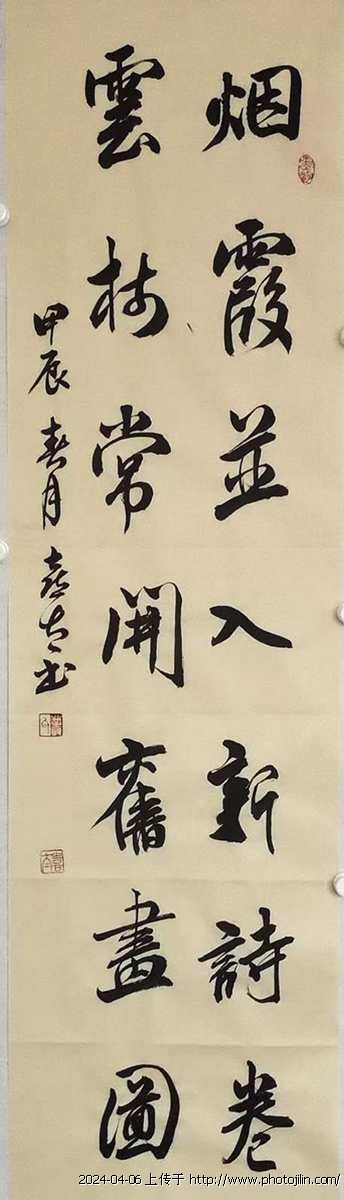 烟霞並入新詩卷
雲樹常開舊畫圖
甲辰春月
2024-04-06 上传于 http://www.photojilin.com